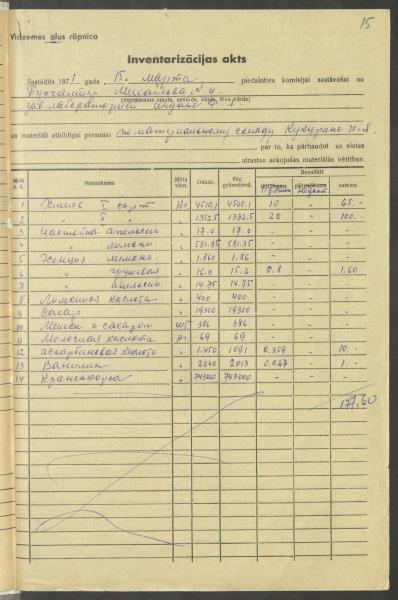 15
Vidzemes alus rūpnīca
Inventarizācijas akts
Sastādīts 1971 gada 15. марта piedaloties komisijai sastāvošai no
Бухгалтер Михайлова
(ieņemamais amats, uzvārds, vārds, tēva vārds)
зав. лабораторией
un materiāli atbildīgai personai по материальному складу
par to, ka pārbaudot uz vietas
atrastas sekojošas materiālās vērtības:
Nosaukums Mēra vien. Daudz. Pēc grāmatved. Rezultāti summa
1 Хмель I сорт кг 4510.1 4500.1 10 - 65.-
2 " II " " 1352.5 1332.5 20 - 100.-
3 Настойка апельсин " 17.0 17.0 - - -
4 " лимонн " 581.35 581.35 - - -
5 Эсенция лимонн. " 1.860 1.86 - - -
6 " грушевая " 16.0 15.2 0.8 - 1.60
7 " апельсин. " 14.75 14.75 - - -
8 Лимонная кислота " 400 400 - - -
9 Сахар " 19300 19300 - - -
10 Мешки с сахаром шт 386 386 - - -
11 Молочная кислота кг 69 69 - - -
12 аскорбиновая кислота " 1.450 1.091 0.359 - 10.-
13 Ванилин " 2.040 2.013 0.027 - 1.-
14 " 743000 743000 - -
177.60